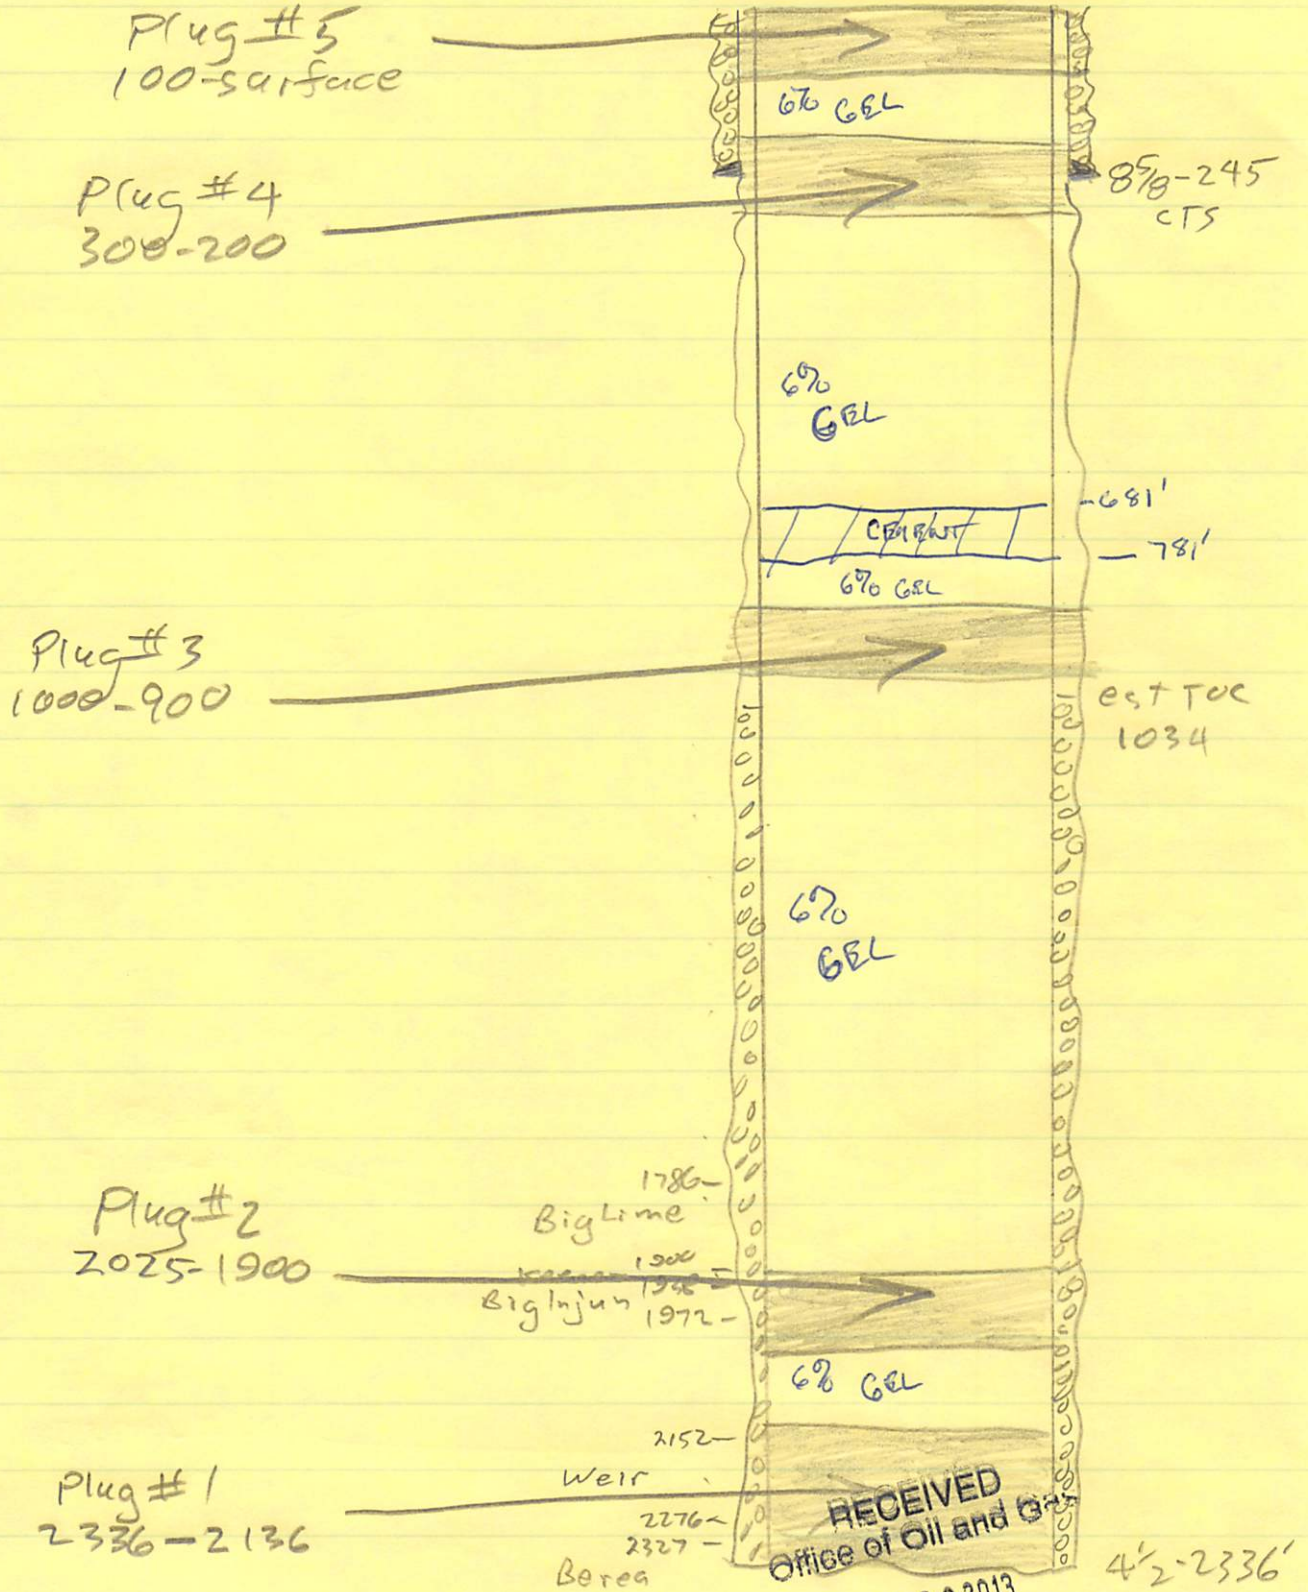 Plug #5
100-surface
6% GEL
Plug #4
300-200
8 5/8-245
CTS
6%
GEL
-681'
CEMENT
- 781'
6% GEL
Plug #3
1000-900
est TOC
1034
6%
GEL
1786-
Big Lime
Plug #2
2025-1900
1900
Big Injun 1972-
6% GEL
2152-
Weir
Plug #1
2336-2136
2276-
2327-
Berea
RECEIVED
Office of Oil and Gas
2013
4 1/2-2336'